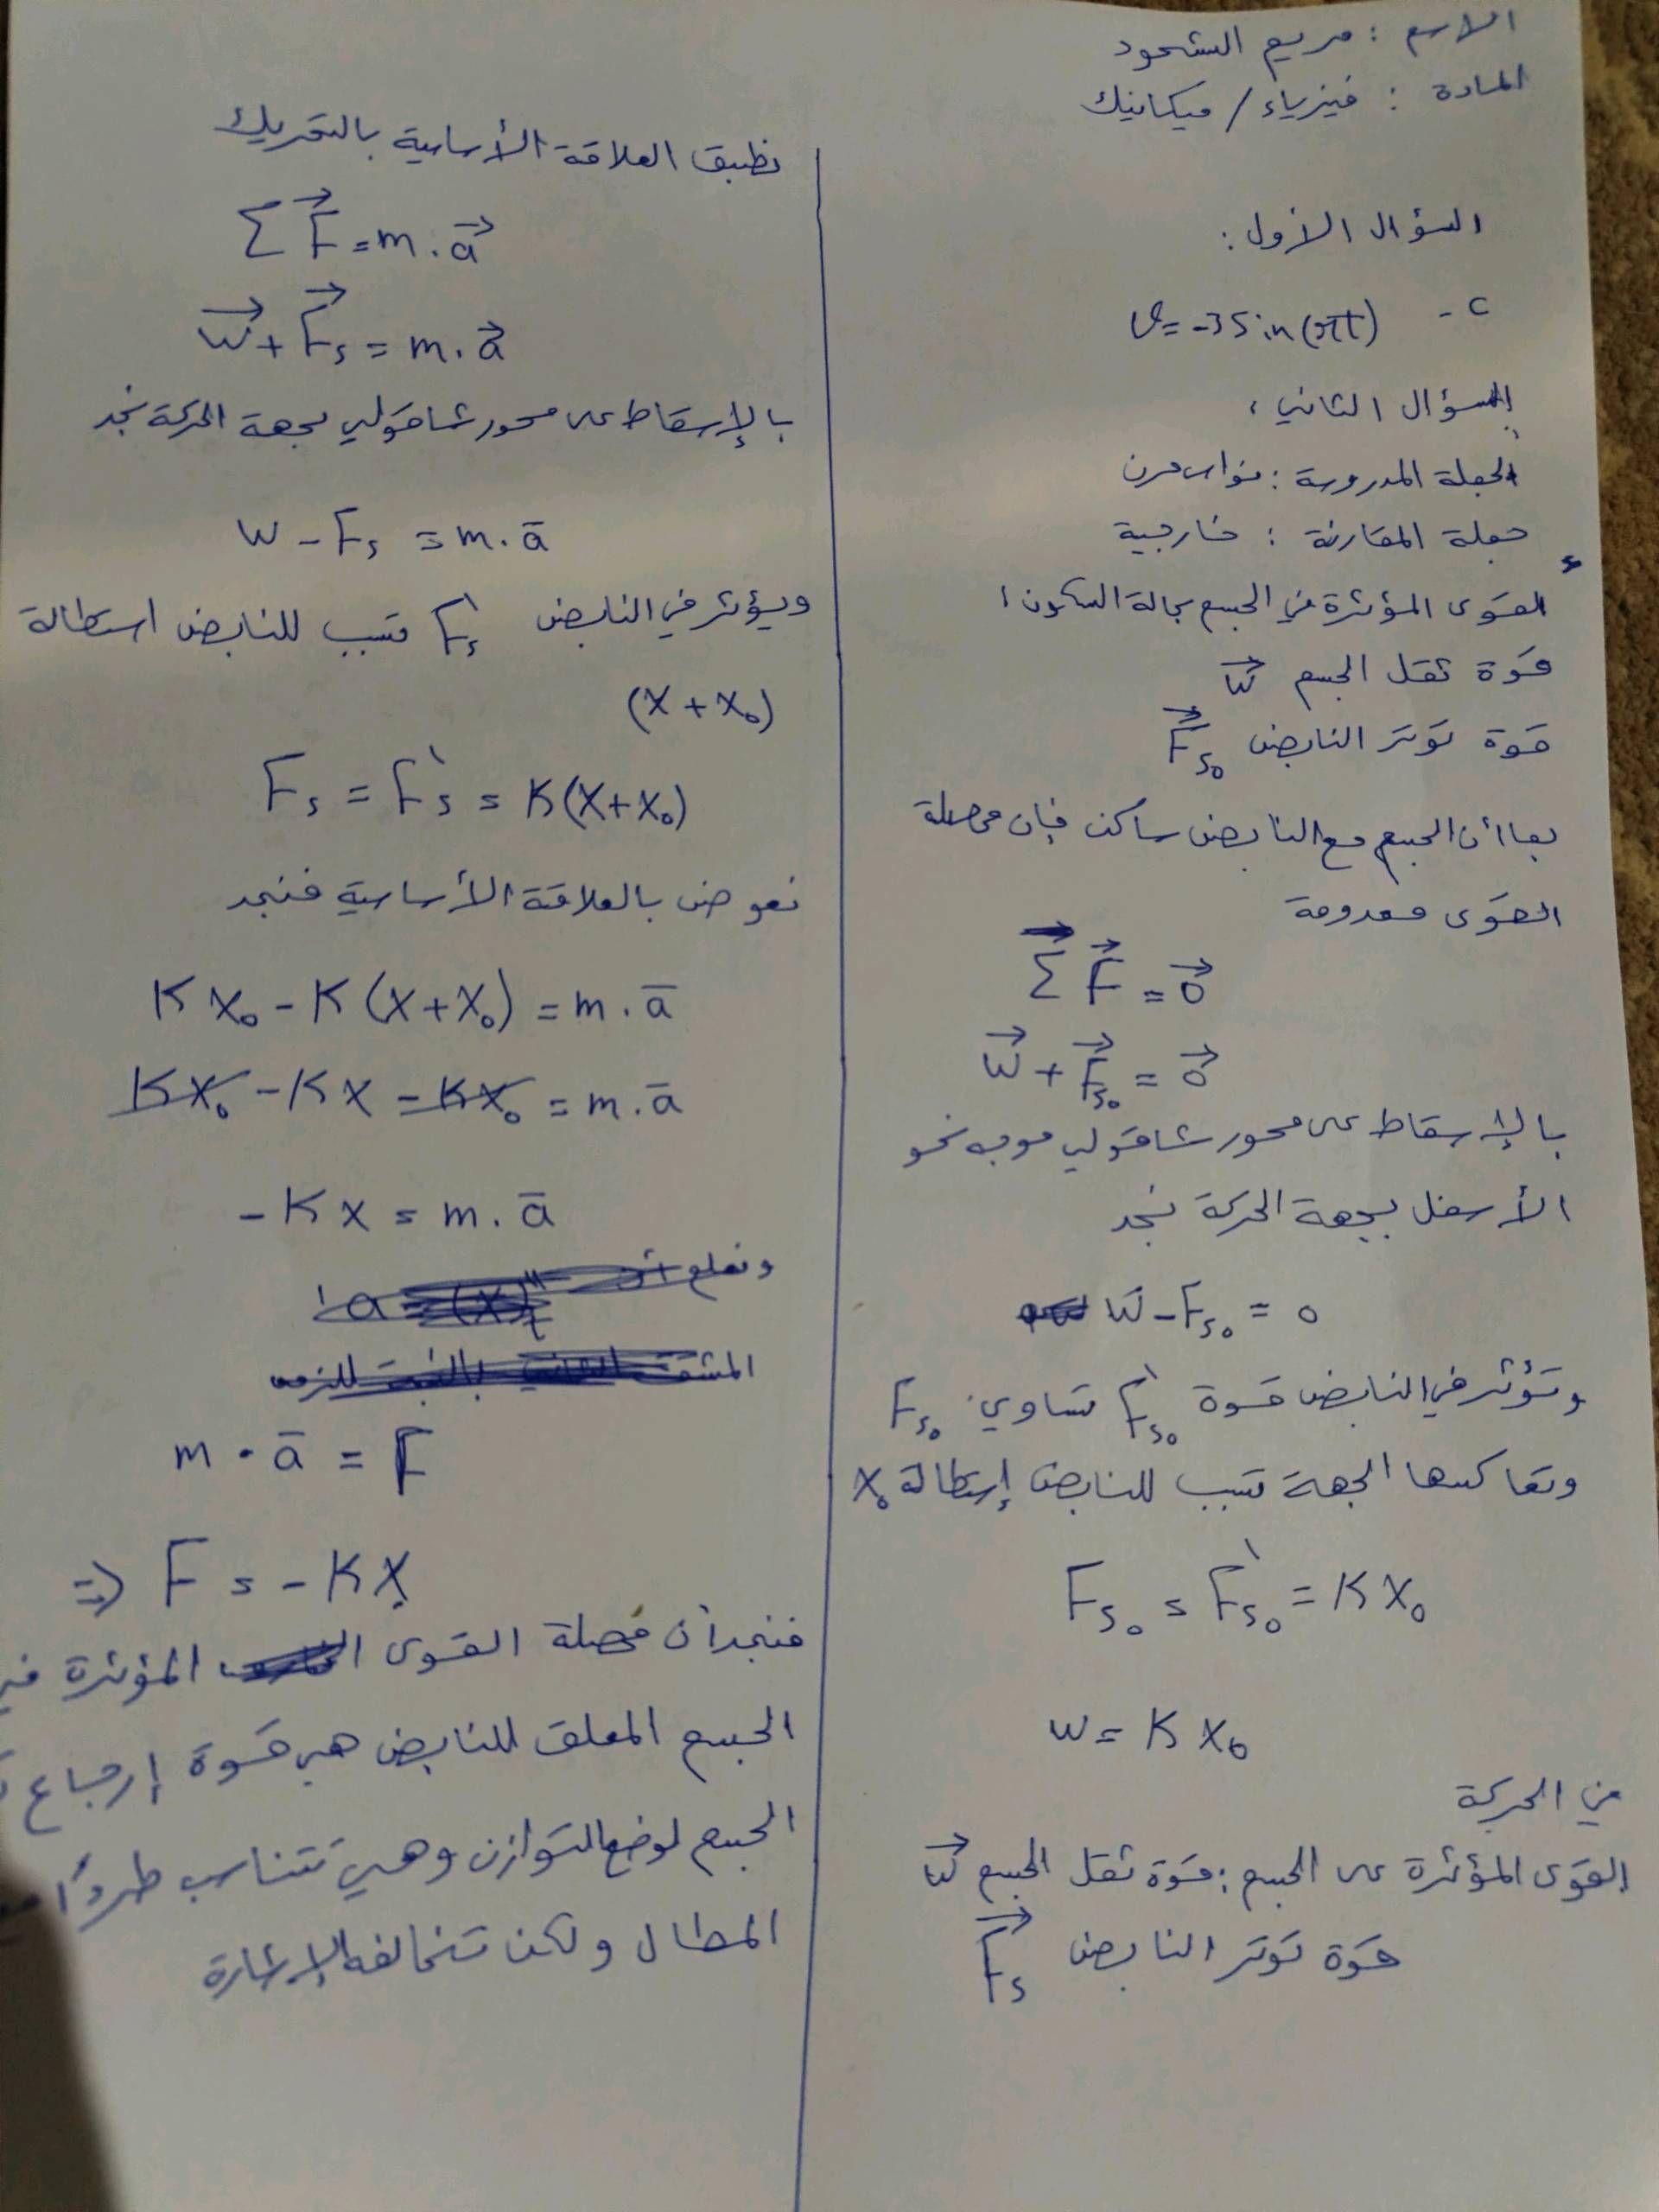 الاسم : مريم الشحود
المادة : فيزياء / ميكانيك
السؤال الأول :
c - v = -3 sin (πt)
السؤال الثاني :
الجملة المدروسة : نواس مرن
جملة المقارنة : خارجية
القوى المؤثرة في الجسم بحالة السكون :
قوة ثقل الجسم W⃗
قوة توتر النابض F⃗s₀
بما أن الجسم مع النابض ساكن فإن محصلة
القوى معدومة
Σ F⃗ = 0⃗
W⃗ + F⃗s₀ = 0⃗
بالإسقاط على محور شاقولي موجه نحو
الأسفل بجهة الحركة نجد
W - Fs₀ = 0
وتؤثر في النابض قوة F's₀ تساوي Fs₀
وتعاكسها الجهة تسبب للنابض إستطالة x₀
Fs₀ = F's₀ = K x₀
W = K x₀
في الحركة
القوى المؤثرة على الجسم : قوة ثقل الجسم W⃗
قوة توتر النابض F⃗s
نطبق العلاقة الأساسية بالتحريك
Σ F⃗ = m . a⃗
W⃗ + F⃗s = m . a⃗
بالإسقاط على محور شاقولي بجهة الحركة نجد
W - Fs = m . a̅
ويؤثر في النابض F's تسبب للنابض استطالة
(x + x₀)
Fs = F's = K(x + x₀)
نعوض بالعلاقة الأساسية فنجد
K x₀ - K (x + x₀) = m . a̅
K x₀ - K x - K x₀ = m . a̅
- K x = m . a̅
m . a̅ = F
⇒ F = - K x
فنجد أن محصلة القوى المؤثرة في
الجسم المعلق للنابض هي قوة إرجاع
الجسم لوضع التوازن وهي تتناسب طرداً
المطال ولكن تخالفه بالإشارة